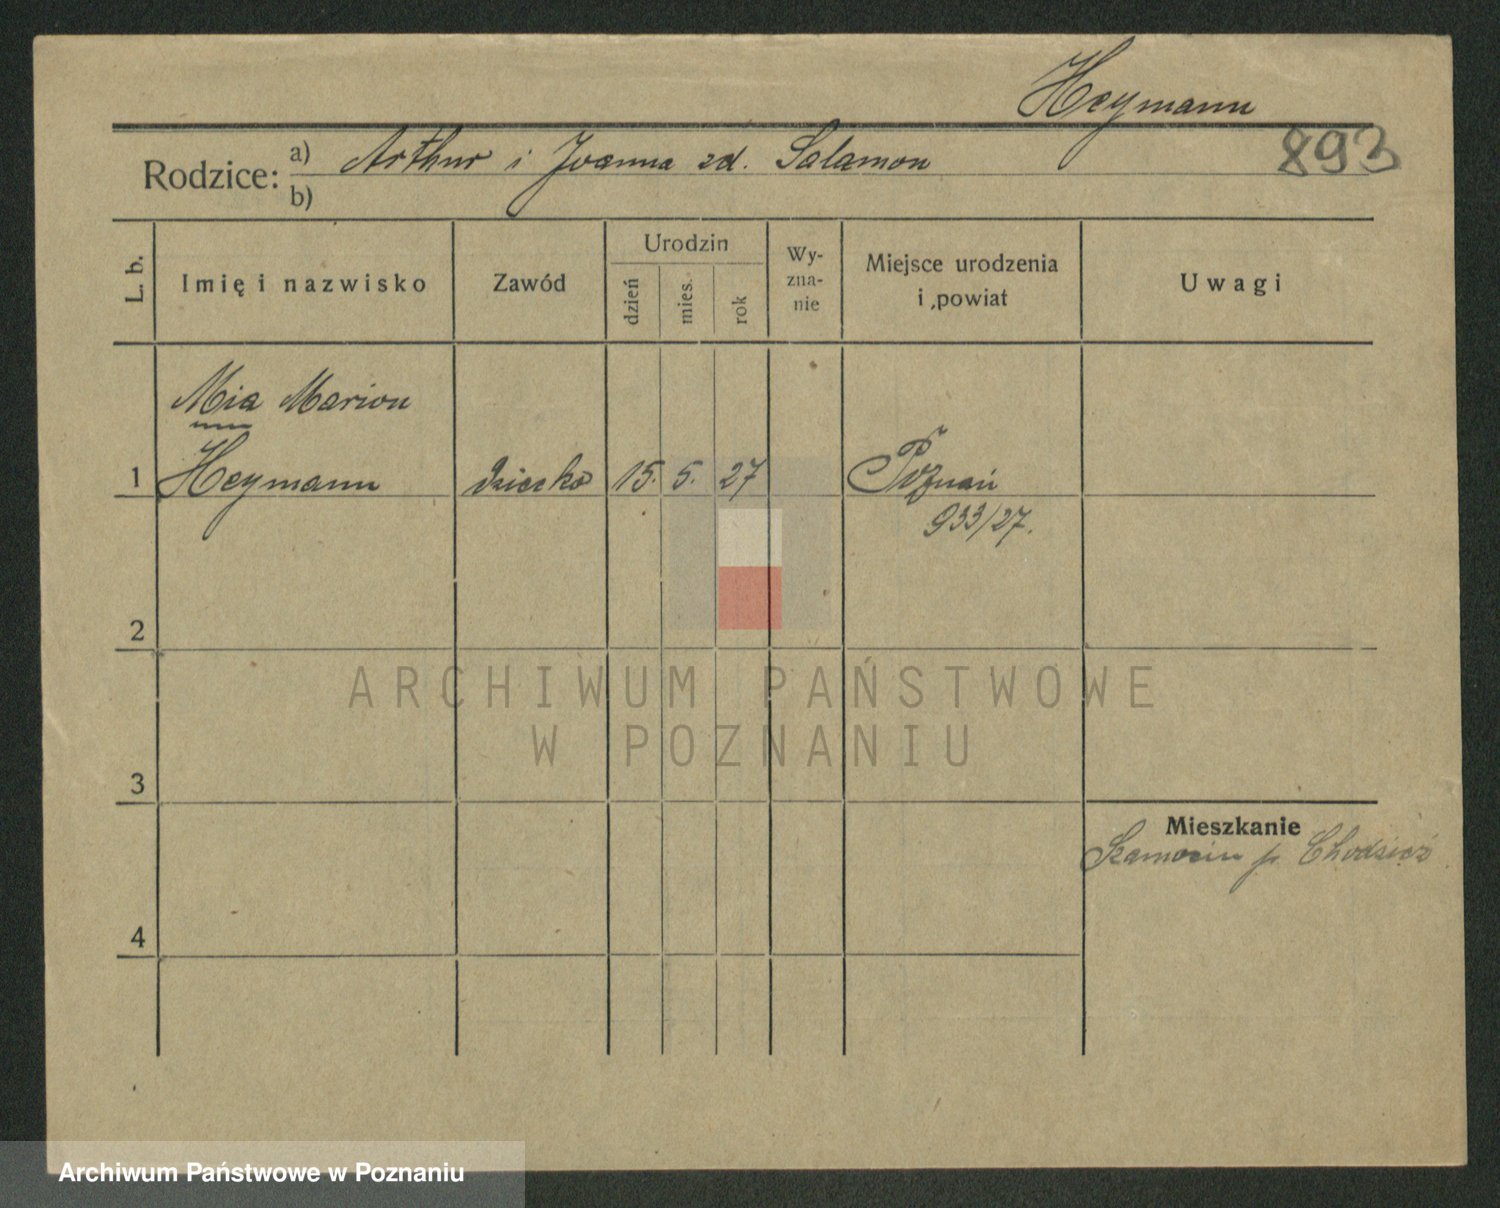 Heymann
893
Rodzice: a) Arthur i Joanna zd. Salamon
b)
L. b.
Imię i nazwisko
Zawód
Urodzin
dzień
mies.
rok
Wy-
zna-
nie
Miejsce urodzenia
i powiat
Uwagi
Mia Marion
1 Heymann dziecko 15. 5. 27 Poznań
933/27.
2
ARCHIWUM PAŃSTWOWE
W POZNANIU
3
Mieszkanie
Szamocin p. Chodzież
4
Archiwum Państwowe w Poznaniu